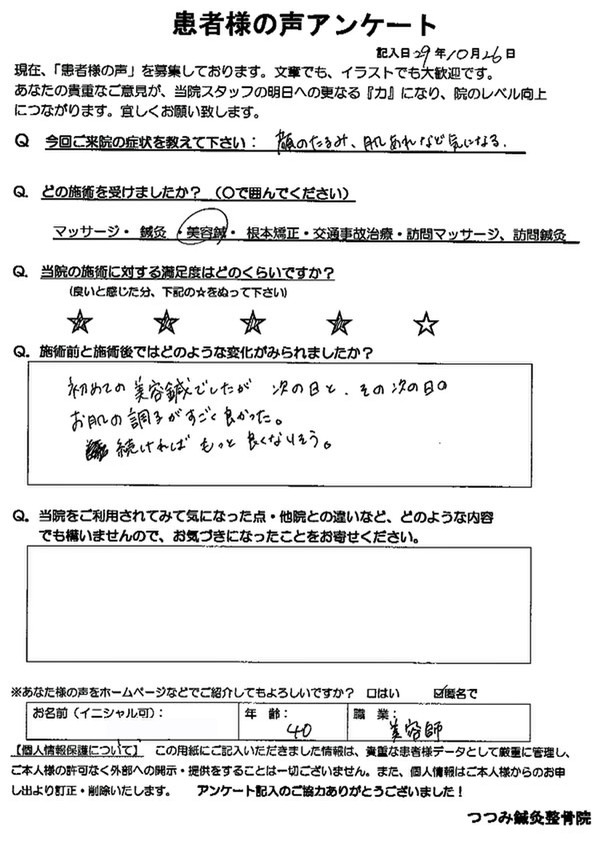 患者様の声アンケート
記入日29年10月26日
現在、「患者様の声」を募集しております。文章でも、イラストでも大歓迎です。
あなたの貴重なご意見が、当院スタッフの明日への更なる『力』になり、院のレベル向上
につながります。宜しくお願い致します。
Q 今回ご来院の症状を教えて下さい： 顔のたるみ、肌あれなど気になる.
Q. どの施術を受けましたか？（○で囲んでください）
マッサージ・ 鍼灸 ・美容鍼・ 根本矯正・交通事故治療・訪問マッサージ、訪問鍼灸
Q. 当院の施術に対する満足度はどのくらいですか？
(良いと感じた分、下記の☆をぬって下さい)
★ ★ ★ ★ ☆
Q. 施術前と施術後ではどのような変化がみられましたか？
初めての美容鍼でしたが 次の日と、その次の日の
お肌の調子がすごく良かった。
続ければ もっと良くなりそう。
Q. 当院をご利用されてみて気になった点・他院との違いなど、どのような内容
でも構いませんので、お気づきになったことをお寄せください。
※あなた様の声をホームページなどでご紹介してもよろしいですか？ □はい ☑匿名で
お名前（イニシャル可）： 年 齢： 40 職 業： 美容師
【個人情報保護について】 この用紙にご記入いただきました情報は、貴重な患者様データとして厳重に管理し、
ご本人様の許可なく外部への開示・提供をすることは一切ございません。また、個人情報はご本人様からのお申
し出より訂正・削除いたします。 アンケート記入のご協力ありがとうございました！
つつみ鍼灸整骨院